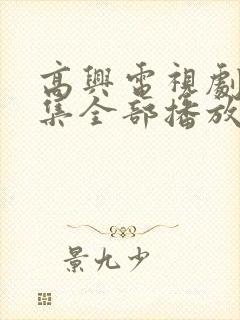 高興電視劇
集全部播放
景九少